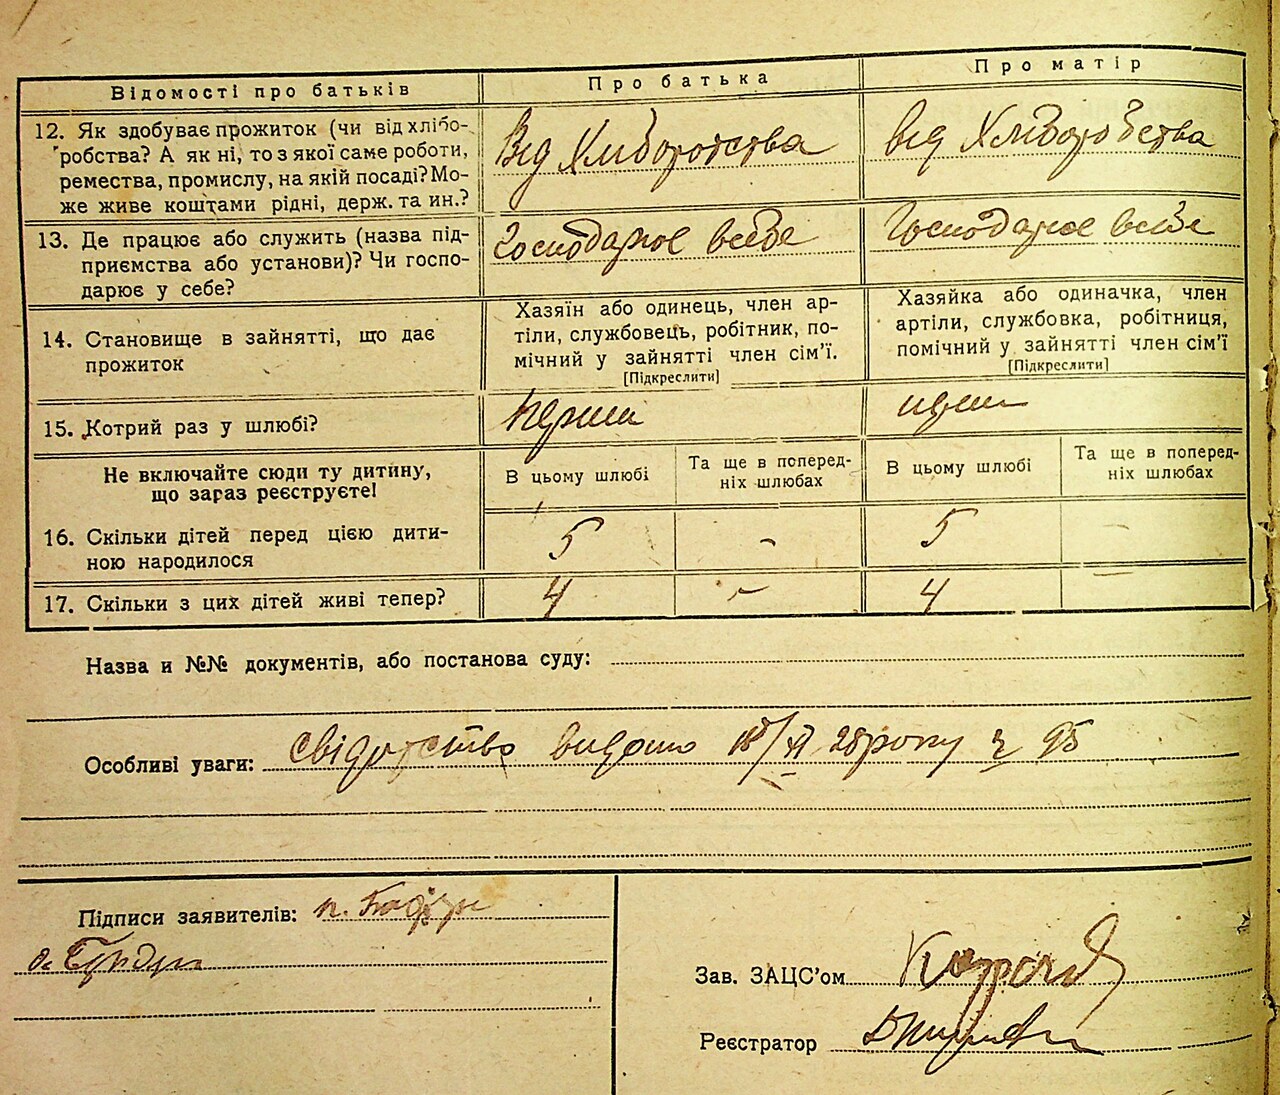 Відомості про батьків
Про батька
Про матір
12. Як здобуває прожиток (чи від хлібо-
робства? А як ні, то з якої саме роботи,
ремества, промислу, на якій посаді? Мо-
же живе коштами рідні, держ. та ин.?
Від Хліборобства
Від Хліборобства
13. Де працює або служить (назва під-
приємства або установи)? Чи госпо-
дарює у себе?
Господарює в себе
Господарює в себе
14. Становище в зайнятті, що дає
прожиток
Хазяїн або одинець, член ар-
тіли, службовець, робітник, по-
мічний у зайнятті член сім'ї.
[Підкреслити]
Хазяйка або одиначка, член
артіли, службовка, робітниця,
помічний у зайнятті член сім'ї
[Підкреслити]
15. Котрий раз у шлюбі?
перший
перший
Не включайте сюди ту дитину,
що зараз реєструєте!
В цьому шлюбі
Та ще в поперед-
ніх шлюбах
В цьому шлюбі
Та ще в поперед-
ніх шлюбах
16. Скільки дітей перед цією дити-
ною народилося
5
-
5
-
17. Скільки з цих дітей живі тепер?
4
-
4
-
Назва и №№ документів, або постанова суду:
Особливі уваги: свідотство видано року ч 95
Підписи заявителів:
Зав. ЗАЦС'ом
Реєстратор